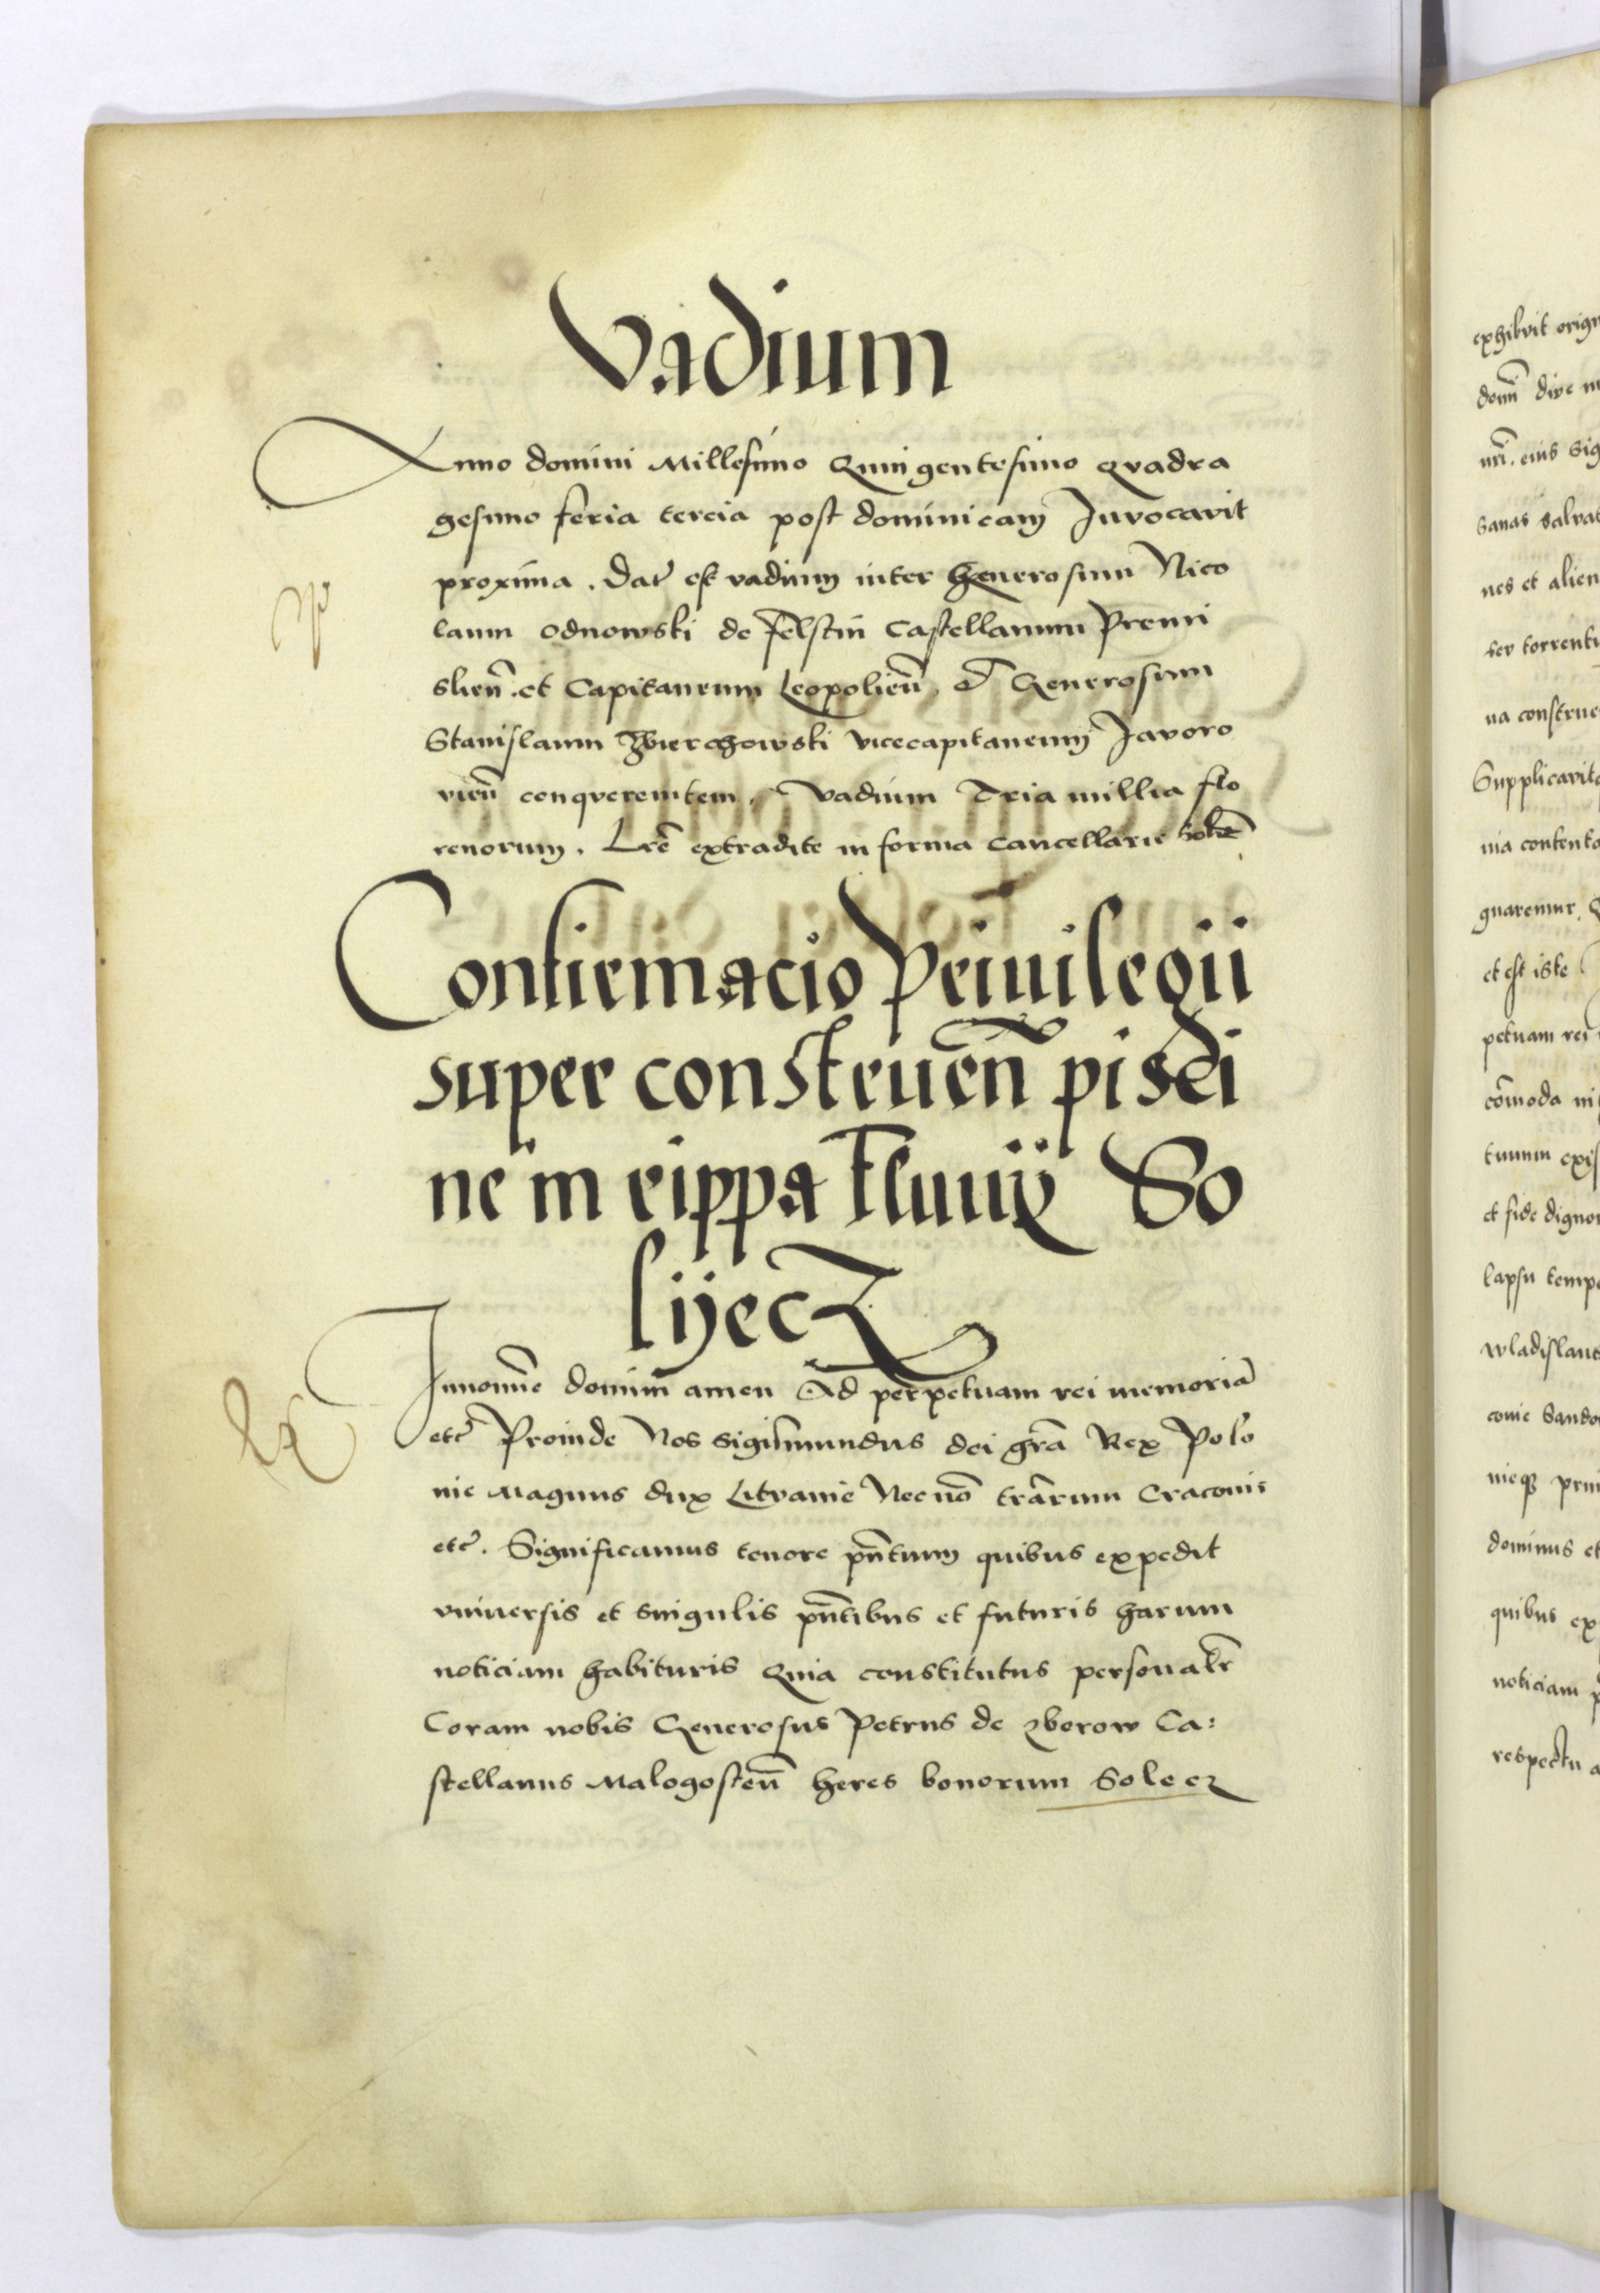 Vadium
Anno domini Millesimo Quingentesimo Qvadra
gesimo feria tercia post dominicam Invocavit
proxima. Dat̃ est vadium inter Generosum Nico
laum Odnowski de felstin Castellanum Premi
slien̄. et Capitaneum Leopolien̄. et Generosum
Stanislaum vicecapitaneum Javoro
vien̄ conqverentem. Vadium Tria millia flo
renorum. Lrē extradite in forma Cancellarie
Confirmacio Privilegii
super construen̄ pisci
ne in rippa fluvij So
lyecz
Innomīe domini amen Ad perpetuam rei memoriā
etc̃ Proinde Nos Sigismundus dei grā Rex Polo
nie Magnus dux Litvanie Necnō trārum Cracovie
etc̃. Significamus tenore pn̄tum quibus expedit
vniversis et singulis pn̄tibus et futuris harum
noticiam habituris Quia constitutus personalr̄
Coram nobis Generosus Petrus de zborow Ca:
stellanus Malogosten̄ heres bonorum Solecz
exhibvit
domī dive
nr̄i. eius
sanas
nes et alien
torrent
va constru
Supplicavit
nia content
gnaremur.
et est iste
petuam rei
cōmoda
tuum
et fide digno
lapsu temp
wladislaus
covie Sando
nieq3
dominus et
quibus ex
noticiam
respectu a